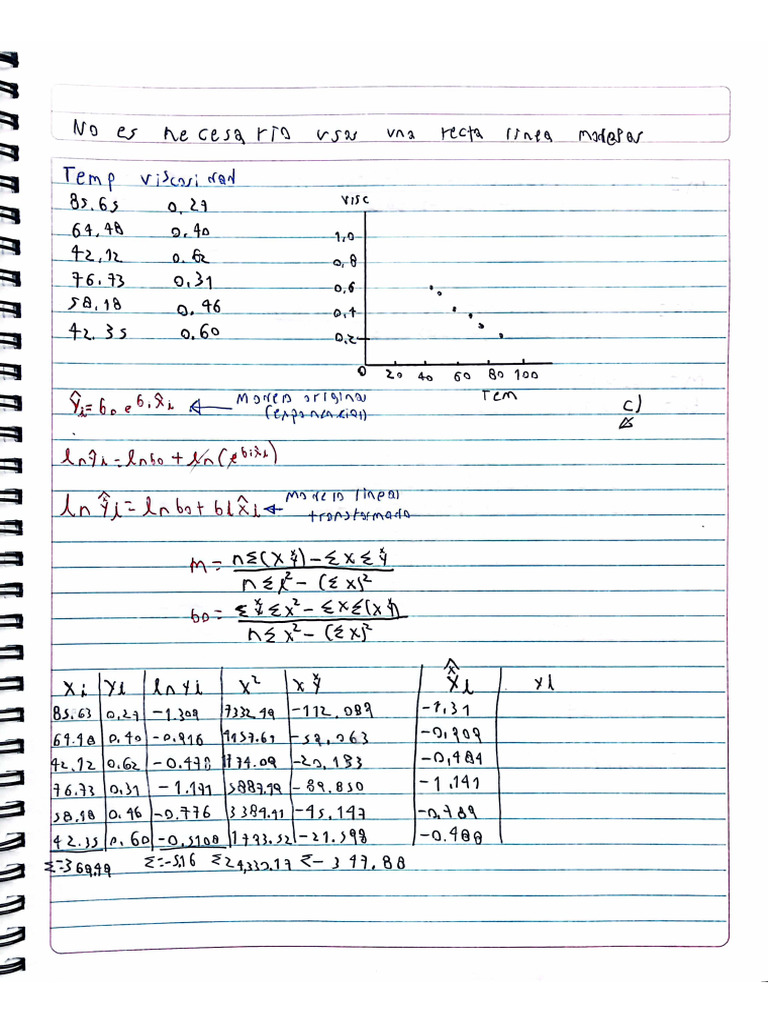 No es necesario usar una recta linea
Temp viscosidad
85.65 0,27
64,48 0,40
42,12 0.62
76.73 0,31
58,18 0,46
42.35 0,60
visc
1,0
0,8
0,6
0,4
0,2
0 20 40 60 80 100
Tem
c)
Ŷi = b0 e^b1 x̂i ← Modelo original
(exponencial)
ln ŷi = ln b0 + ln(e^b1 x̂i)
ln Ŷi = ln b0 + b1 x̂i ← Modelo lineal
transformado
m = nΣ(x y*) − Σx Σy* / nΣx² − (Σx)²
b0 = Σy* Σx² − Σx Σ(x y*) / nΣx² − (Σx)²
Xi Yi ln yi X² x y* x̂i yi
85.63 0,27 −1.309 7332.49 −112,089 −1,31
64.48 0,40 −0.916 4157.67 −59,063 −0,909
42,12 0,62 −0.478 1774.09 −20,133 −0,484
76.73 0,31 −1.171 5887.49 −89,850 −1,141
58.18 0,46 −0.776 3384.91 −45,147 −0,789
42.35 0,60 −0,5108 1793.52 −21.598 −0.488
Σ=369,49 Σ=−5,16 Σ24,330.17 Σ− 347,88